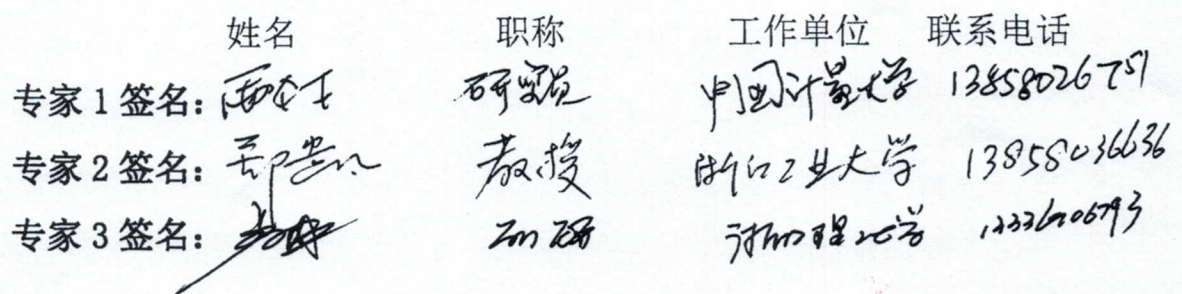 姓名 职称 工作单位 联系电话
专家 1 签名： 研究员 中国计量大学 13858026751
专家 2 签名： 教授 浙江工业大学 13858036636
专家 3 签名： 浙江理工大学